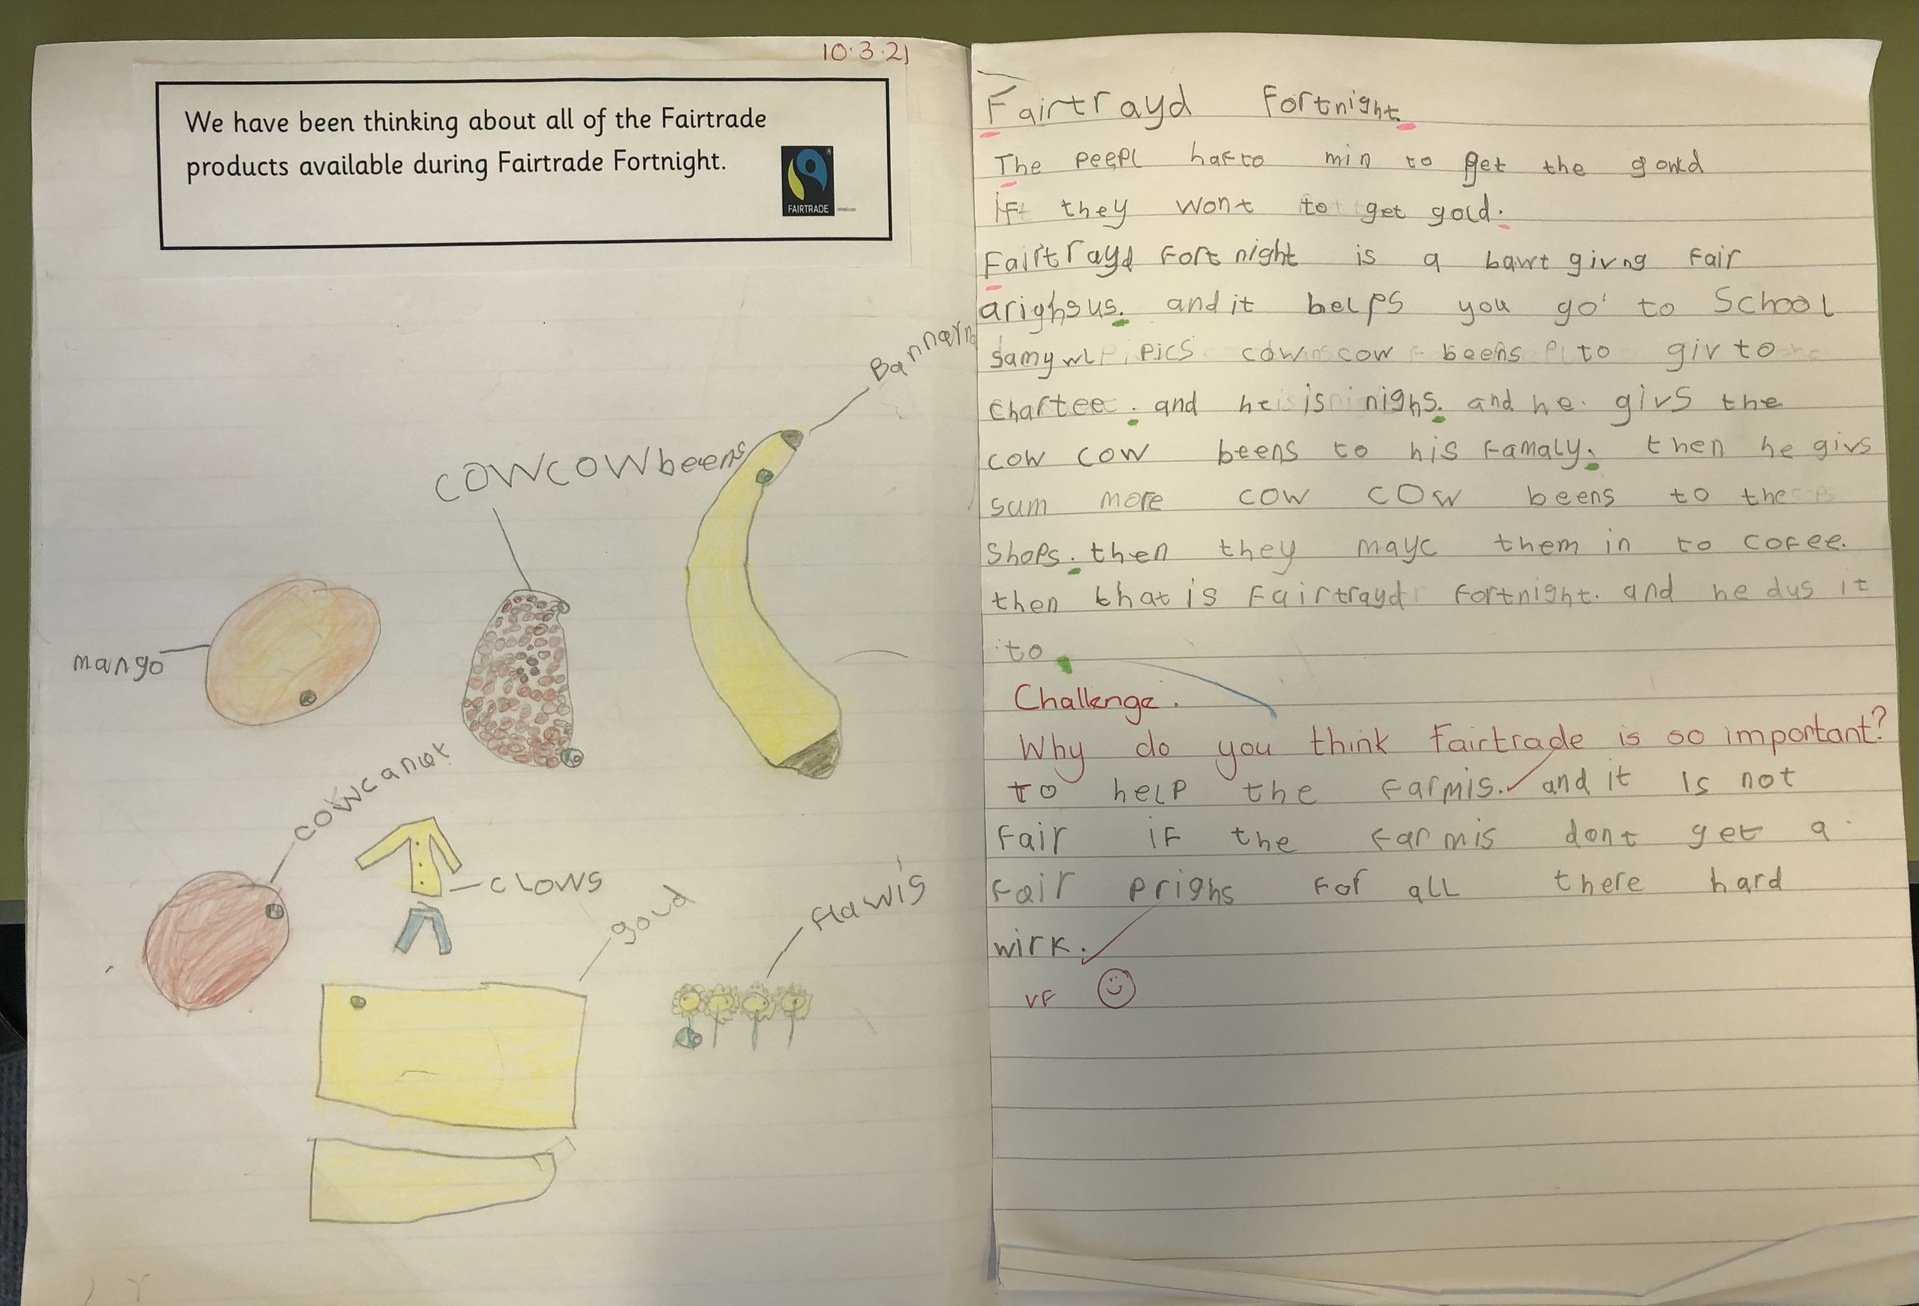 10.3.21
We have been thinking about all of the Fairtrade
products available during Fairtrade Fortnight.
FAIRTRADE
Bannarna
cowcowbeens
mango
cowcanut
clows
gould
flawis
Fairtrayd Fortnight.
The peepl hafto min to get the gould
if they wont to get gold.
Fairtrayd Fortnight is a bawt givng fair
arighsus. and it helps you go to School
samywl pics cow cow beens to giv to
chartee. and he is nighs. and he givs the
cow cow beens to his famaly. then he givs
sum more cow cow beens to the
shops. then they mayc them in to cofee.
then that is Fairtrayd Fortnight. and he dus it
to
Challenge.
Why do you think Fairtrade is so important?
to help the farmis. and it is not
fair if the farmis dont get a
fair prighs for all there hard
wirk.
VF